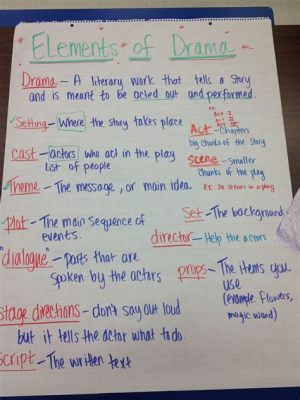 Elements of Drama
Drama - A literary work that tells a story
and is meant to be acted out and performed.
Setting - Where the story takes place
ex.
Act I
Act II
Act III
Act - Chapters
big chunks of the story
Cast - actors who act in the play
list of people
Scene - Smaller
chunks of the play
Ex. 20 scenes in a play
Theme - The message, or main idea
Plot - The main sequence of
events.
Set - The background
director - Help the actors
"dialogue" - parts that are
spoken by the actors
props - The items you
use
(example flowers,
magic wand)
Stage directions - don't say out loud
but it tells the actor what to do
Script - The written text